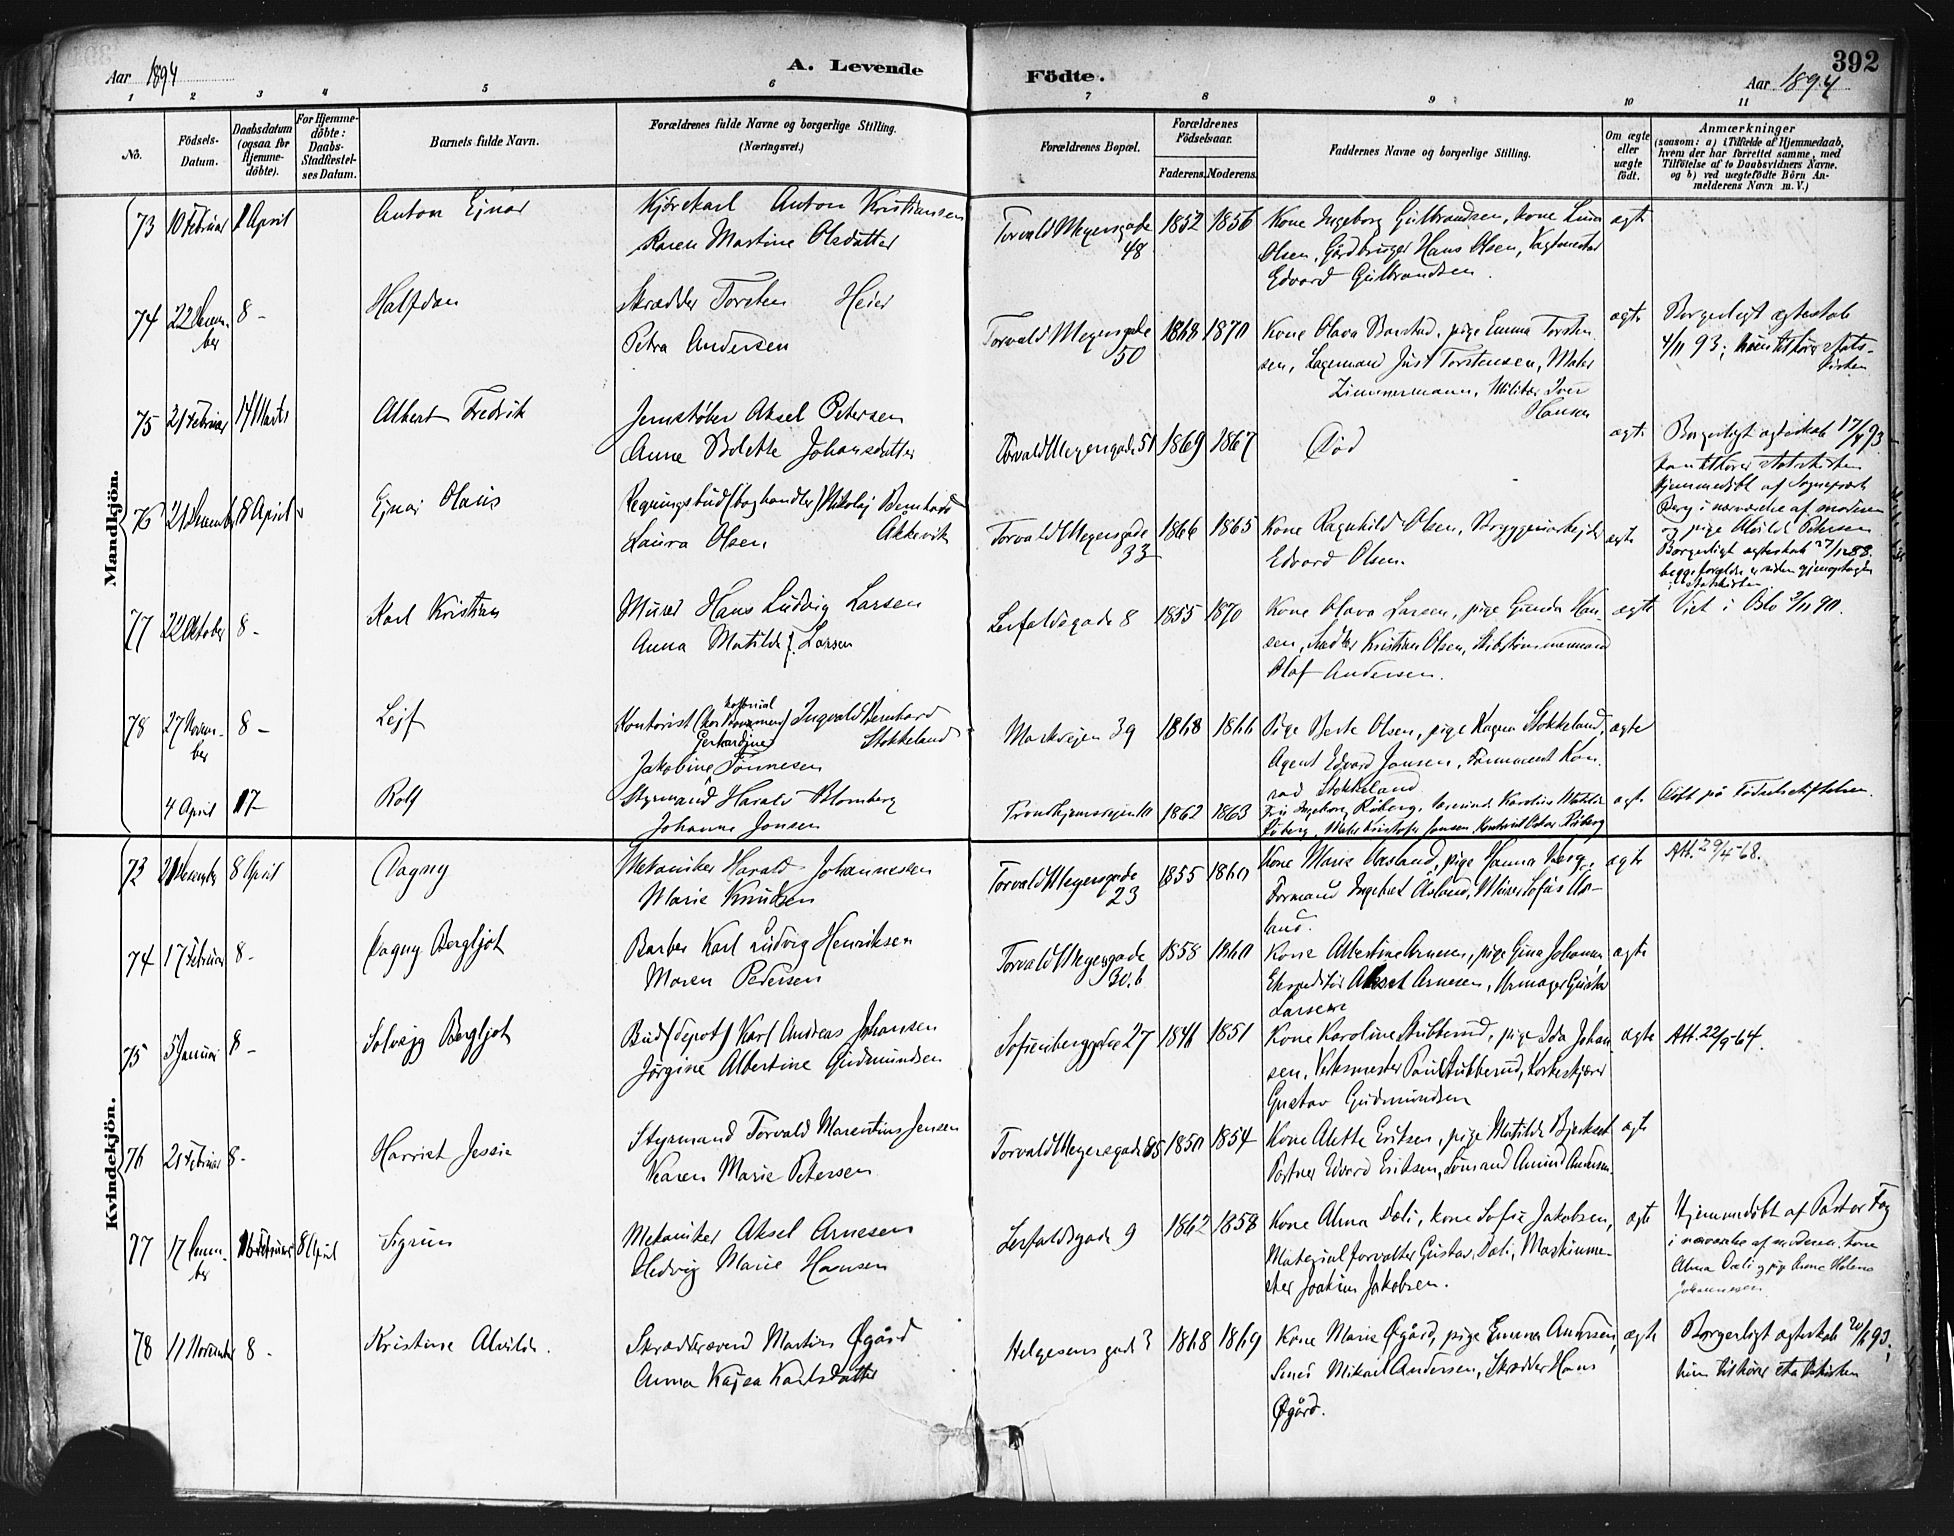 392
Aar 1894
A. Levende Födte.
Aar 1894
1 2 3 4 5 6 7 8 9 10 11
No.
Födsels-Datum.
Daabsdatum (ogsaa for Hjemme-döbte).
For Hjemme-döbte: Daabs-Stadfæstel-ses Datum.
Barnets fulde Navn.
Forældrenes fulde Navne og borgerlige Stilling. (Næringsvei.)
Forældrenes Bopæl.
Forældrenes Födselsaar.
Faderens. Moderens.
Faddernes Navne og borgerlige Stilling.
Om ægte eller uægte födt.
Anmærkninger
(saasom: a) i Tilfælde af Hjemmedaab, hvem der har forrettet samme, med Tilföielse af to Daabsvidners Navne. og b) ved uægtefödte Börn An-melderens Navn m. V.)
Mandkjön.
73 10 Februar 1 April Anton Ejnar Kjørekarl Anton Kristiansen
Karen Martine Olsdatter
Torvald Meyersgade 48 1852 1856
Kone Ingeborg Gulbrandsen, kone
Olsen, Gårdbruger Hans Olsen, Vagtmester
Edvard Gulbrandsen.
ægte
74 22 Decem-ber 8 - Halfdan Skrædder Torsten Heier
Petra Andersen
Torvald Meyersgade 50 1868 1870
Kone Olava Barstad, pige Emma Torsten
sen, Lagermand Just Torstensen, Maler
Zimmermann, Militær Iver
Hansen
ægte
Borgerligt ægteskab
4/11 93; hun tilhører stats-
kirken
75 21 Februar 14 Marts Albert Fredrik Jernstøber Aksel Petersen
Anne Bolette Johansdatter
Torvald Meyersgade 51 1869 1867
Død
ægte
Borgerligt ægteskab 17/4 93.
hun tilhører statskirken
Hjemmedøbt af Sogneprest
Berg i nærværelse af moderen
og pige Petersen
76 21 Decembr 8 April Ejnar Olaus Regningsbud (boghandler) Nikolaj Bernhard
Akkevik
Laura Olsen
Torvald Meyersgade 33 1866 1865
Kone Ragnhild Olsen, Bryggeriarbejder
Edvard Olsen.
ægte
Borgerligt ægteskab 27/12 88.
begge forældre er siden gjenoptagen
i statskirken
77 22 Oktober 8 - Karl Kristian Murer Hans Ludvig Larsen
Anna Matilde f. Larsen
Lerfaldsgade 8 1855 1870
Kone Olava Larsen, pige Gunda Han-
sen, Sadler Kristian Olsen, Skibstømmermand
Olaf Andersen.
ægte
Viet i Oslo 2/11 90.
78 27 Novem-ber 8 - Lejf Kontorist Ingvald Bernhard
Stokkeland
Gerhardine
Jakobine Tönnesen
Markvejen 39 1868 1866
Pige Berte Olsen, pige Ragna Stokkeland,
Agent Edvard Jansen, Formand Kon-
rad Stokkeland
ægte
4 April 17 - Rolf Styrmand Harald Blomberg
Johanne Jonsen
Trondhjemsvejen 10 1862 1863
Fru Ingeborg Röberg, Karoline Matilde
Röberg, Maler Kristofer Jonsen, Kontorist Oskar Röberg
ægte
Døbt på Födselsstiftelsen.
Kvindekjön.
73 21 December 8 April Dagny Mekaniker Harald Johannesen
Marie Knudsen
Torvald Meyersgade 23 1855 1860
Kone Marie Aasland, pige Hanna Berg,
Formand Ingebret Åsland, Murer Sofus Aas-
land.
ægte
Att. 29/4-68.
74 17 Februar 8 - Dagny Bergljot Barber Karl Ludvig Henriksen
Maren Pedersen
Torvald Meyersgade 30.b 1858 1860
Kone Albertine Arnesen, pige Gina Johansen,
Ekspeditör Aksel Arnesen, Urmager Gustav
Larsen
ægte
75 5 Januar 8 - Solvejg Bergljot Bud (depot) Karl Andreas Johansen
Jörgine Albertine Gudmundsen
Sofienberggade 27 1846 1851
Kone Karoline Stubberud, pige Ida Johan-
sen, Verksmester Paul Stubberud, Korkeskjærer
Gustav Gudmundsen
ægte
Att. 22/9-64.
76 21 Februar 8 - Harriet Jessie Styrmand Torvald Marentius Jensen
Karen Marie Petersen
Torvald Meyersgade 85 1850 1854
Kone Alette Eriksen, pige Matilde Bjerkset
Portner Edvard Eriksen, Sömand Amund Andersen
ægte
77 17 Decem-ber 16 Februar 8 April Sigrun Mekaniker Aksel Arnesen
Hedvig Marie Hansen
Lerfaldsgade 9 1862 1858
Kone Alma Dæli, kone Sofie Jakobsen,
Materialforvalter Gustav Dæli, Maskinme-
ster Joakim Jakobsen.
ægte
Hjemmedöbt af Pastor Fog
i nærværelse af moderen, kone
Alma Dæli og pige Anne Helene
Johannesen
78 11 November 8 - Kristine Alvilde. Skræddersvend Martin Øgård
Anna Kajsa Karlsdatter
Helgesens gade 3 1868 1869
Kone Marie Øgård, pige Emma Andersen,
Smed Mikael Andersen, Skrædder Hans
Øgård.
ægte
Borgerligt ægteskab 20/1 93;
hun tilhører statskirken